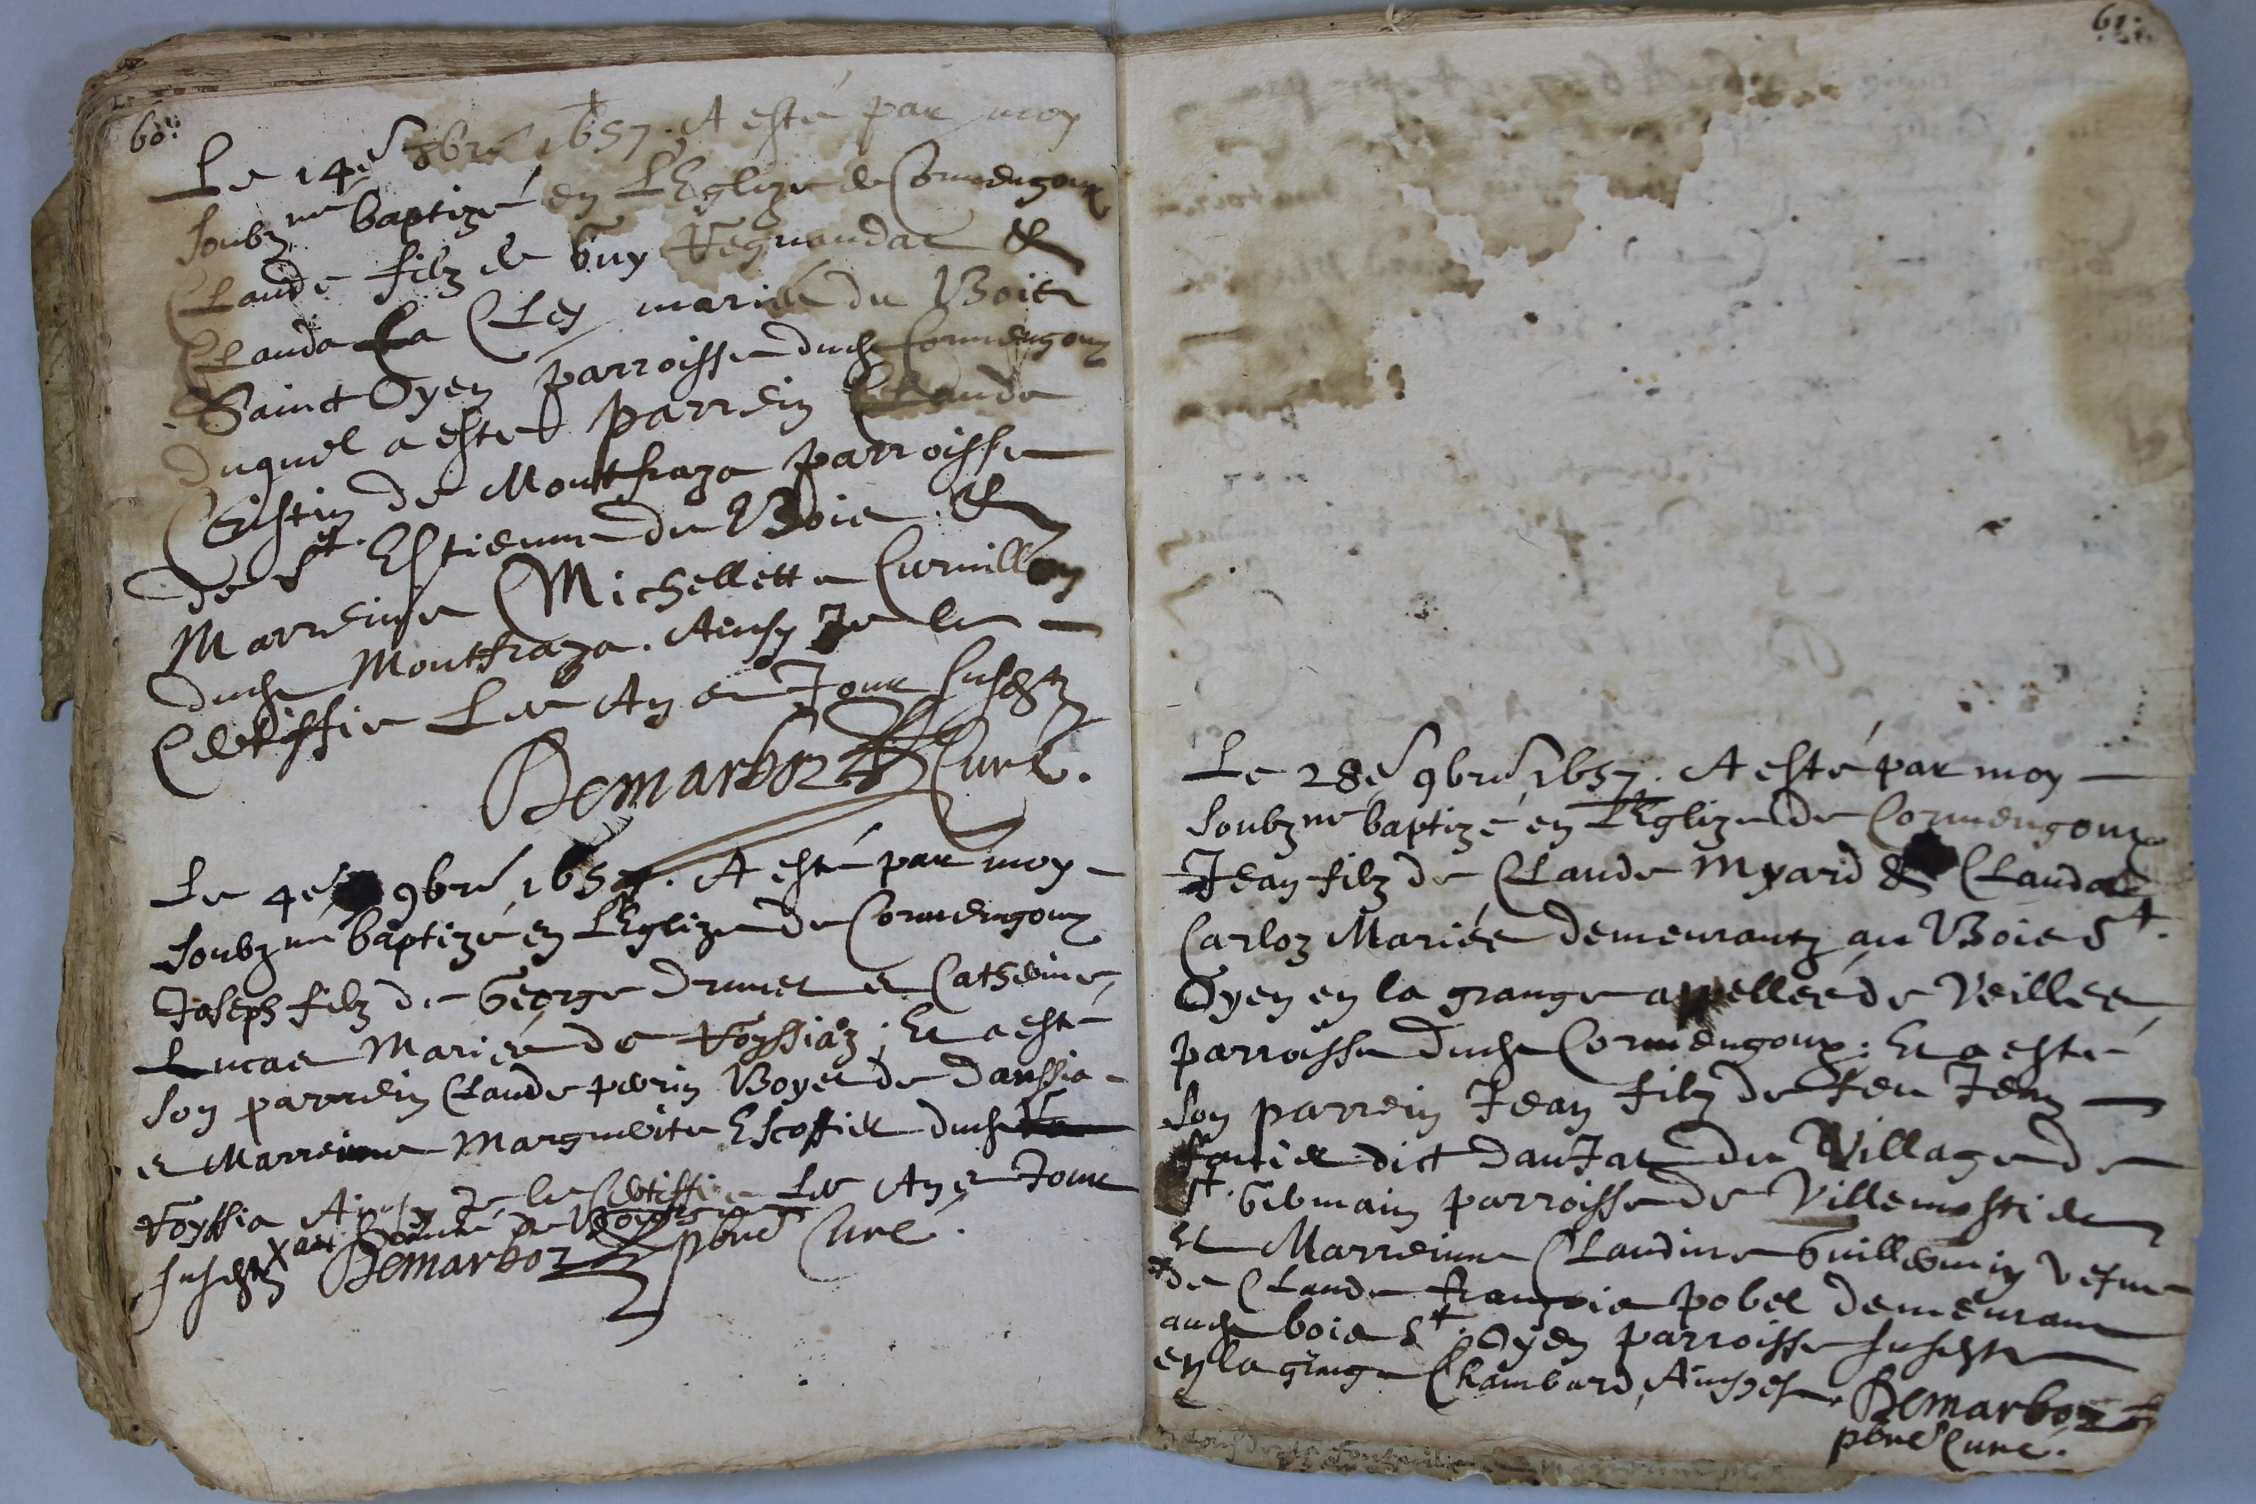 60.
Le 14e 8bre 1657. A esté par moy
soubzné baptizé en L'Eglize de Cormengoux
Claude filz de Guy &
Clauda La Cley mariés du Bois
Sainct Oyen parroisse dudt Cormengoux
duquel a esté parrein Claude
de Montfraza parroisse
de St. Estienne du Bois &
Marreine Michellette Curvillon
dudt Montfraza. Ainsy Je le
Certiffie Les An et Jour susdtz
Demarboz Curé.
Le 4e 9bre 1657. A esté par moy
soubzné baptizé en L'Eglize de Cormengoux
Joseph filz de George Druvet et Catherine
Lucas Mariés de Voyssiaz; Et a esté
son parrein Claude perrin Boyer de Danssia
et Marreine Marguerite Escoffier dudt
Voyssia Ainsy Je le Certiffie Les An et Jour
susdtz Demarboz pbre Curé.
61.
Le 28e 9bre 1657. A esté par moy
soubzné baptizé en L'Eglize de Cormengoux
Jean filz de Claude Myard & Clauda
Carloz Mariés demeurantz au Bois St.
Oyen en la grange appellée de Veilles
parroisse dudt Cormengoux; Et a esté
son parrein Jean filz de feu Jean
dict Danjat du Village de
St. Germain parroisse de Villemostier
Et Marreinne Claudine Guillermin vefve
de Claude françois pobel demeurant
audt bois St. Oyen parroisse susdte
en la grange Chambard, Ainsy est. Demarboz
pbre Curé.